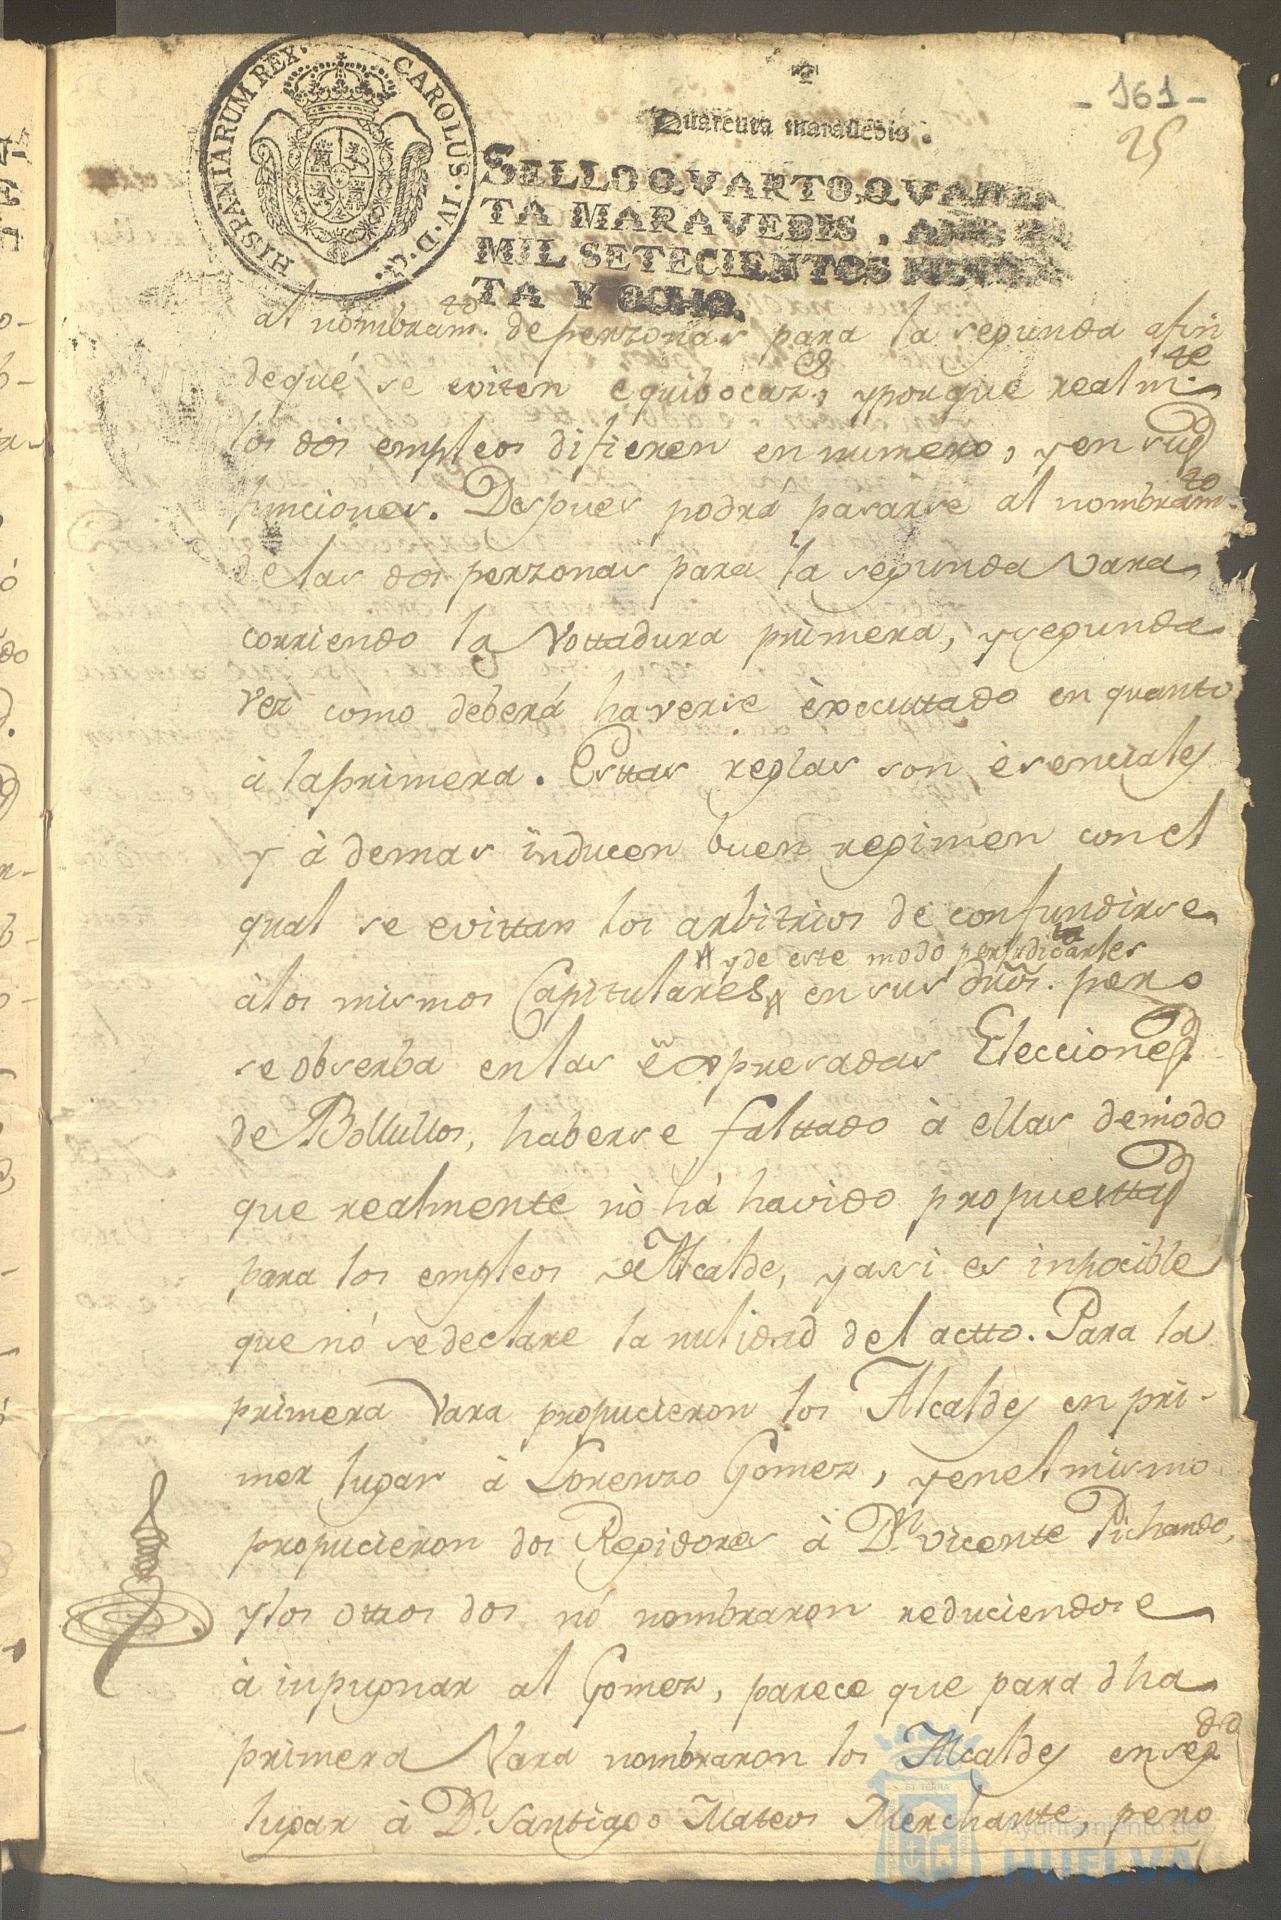 HISPANIARUM REX. CAROLUS. IV. D. G.
- 161 -
25
Quarenta maravedis.
SELLO QVARTO, QVAREN
TA MARAVEDIS, AÑO DE
MIL SETECIENTOS NOVEN
TA Y OCHO.
al nombram.to de perzonas para la segunda afin
dequé se eviten equibocaz.es, yporque realm.te
los dos empleos difieren en numero, y en sus
funciones. Despues podrá pasarse al nombram.to
de las dos perzonas para la segunda Vara,
corriendo la Vottadura primera, y segunda
vez como deberá haverse èxecuttado en quanto
à la primera. Esttas reglas son èsenciales
y à demas inducen buen regimen con el
qual se evittan los arbitrios de confundirse
y de este modo perjudicarles
àlos mismos Capitulares en sus dños. pero
se obserba en las expresadas Elecciones
de Bollullos, haberse falttado à ellas demodo
que realmente nò há havido propuesttas
para los empleos de Alcalde, y asi es inpocible
que nó se declare la nulidad del actto. Para la
primera Vara propucieron los Alcaldes en pri-
mer lugar à Lorenzo Gomez, y en el mismo
propucieron dos Regidores à D.n Vicente Pichardo,
y los ottros dos nó nombraron reduciendose
à inpugnar al Gomez, parece que para dha
primera Vara nombraron los Alcaldes en seg.do
lugar à D.n Santiago Mateos Merchante, pero
Ayuntamiento de
HUELVA